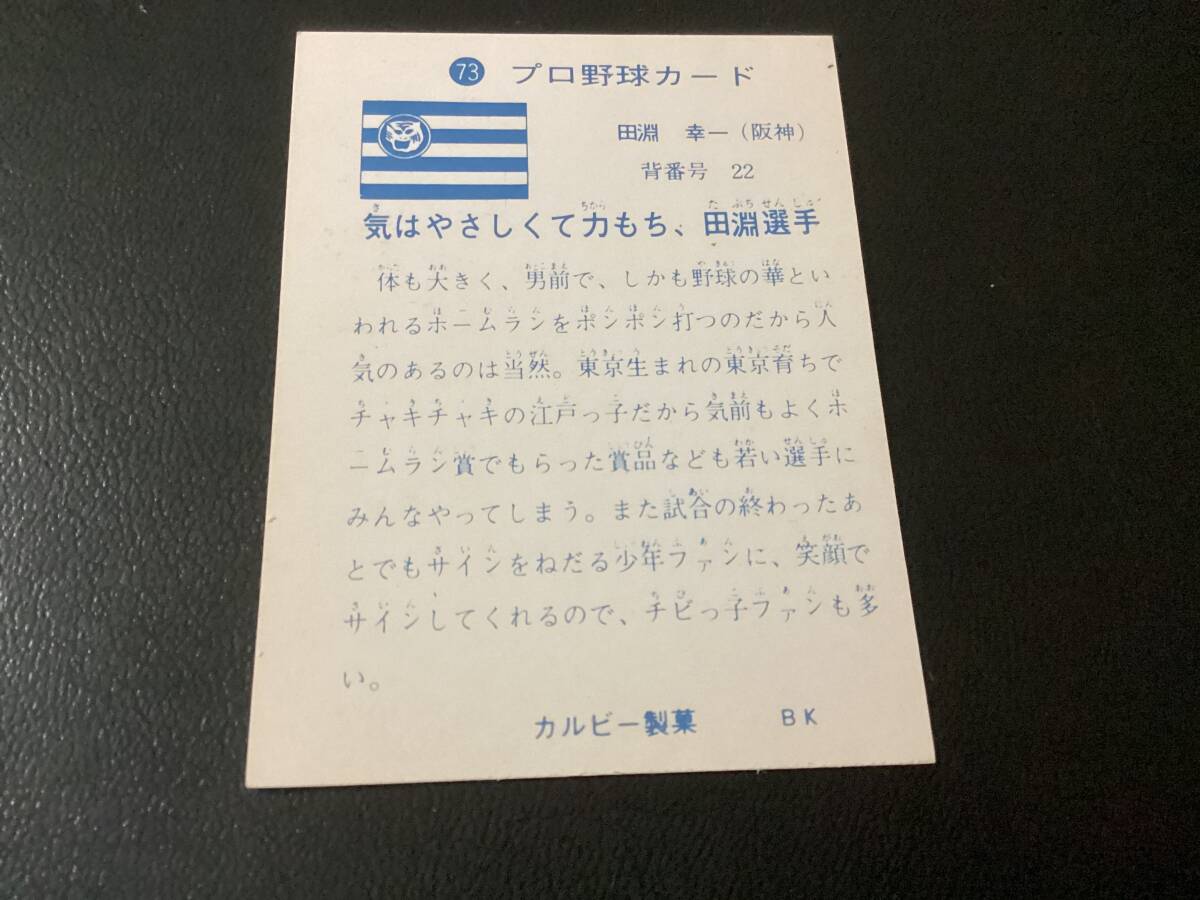 73 プロ野球カード
田淵 幸一（阪神）
背番号 22
気はやさしくて力もち、田淵選手
体も大きく、男前で、しかも野球の華とい
われるホームランをポンポン打つのだから人
気のあるのは当然。東京生まれの東京育ちで
チャキチャキの江戸っ子だから気前もよくホ
ームラン賞でもらった賞品なども若い選手に
みんなやってしまう。また試合の終わったあ
とでもサインをねだる少年ファンに、笑顔で
サインしてくれるので、チビっ子ファンも多
い。
カルビー製菓 BK